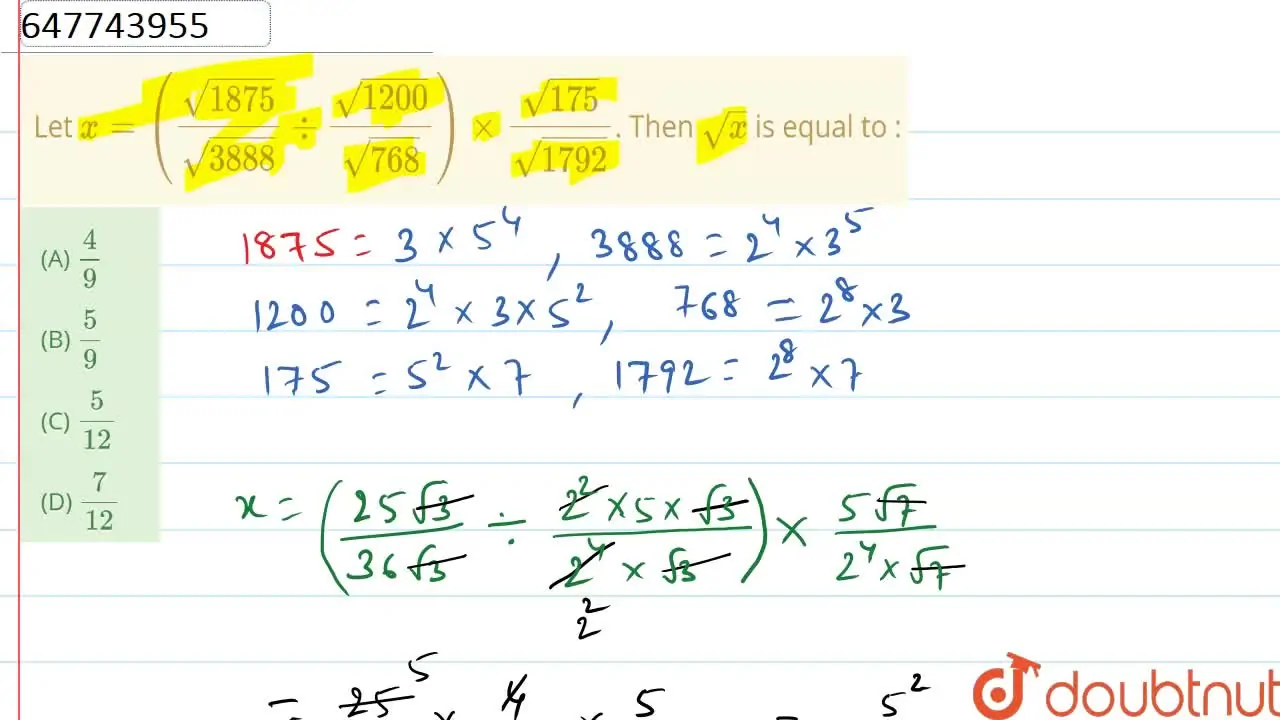 647743955
Let x = (√1875/√3888 ÷ √1200/√768) × √175/√1792. Then √x is equal to :
(A) 4/9
(B) 5/9
(C) 5/12
(D) 7/12
1875 = 3 × 5⁴ , 3888 = 2⁴ × 3⁵
1200 = 2⁴ × 3 × 5² , 768 = 2⁸ × 3
175 = 5² × 7 , 1792 = 2⁸ × 7
x = (25√3/36√3 ÷ 2² × 5 × √3/2⁴ × √3) × 5√7/2⁴ × √7
2²
5
= 25 × 4 × 5 = 5²
doubtnut